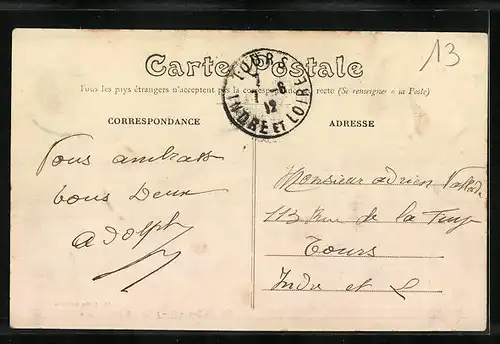 13
Carte Postale
Tous les pays étrangers n'acceptent pas la correspondance au recto (Se renseigner à la Poste)
TOURS
1 - 6
12
INDRE ET LOIRE
CORRESPONDANCE
ADRESSE
Vous ambrass
tous Deux
adolph
Monsieur adrien
113 Rue de la
Tours
Indre et L